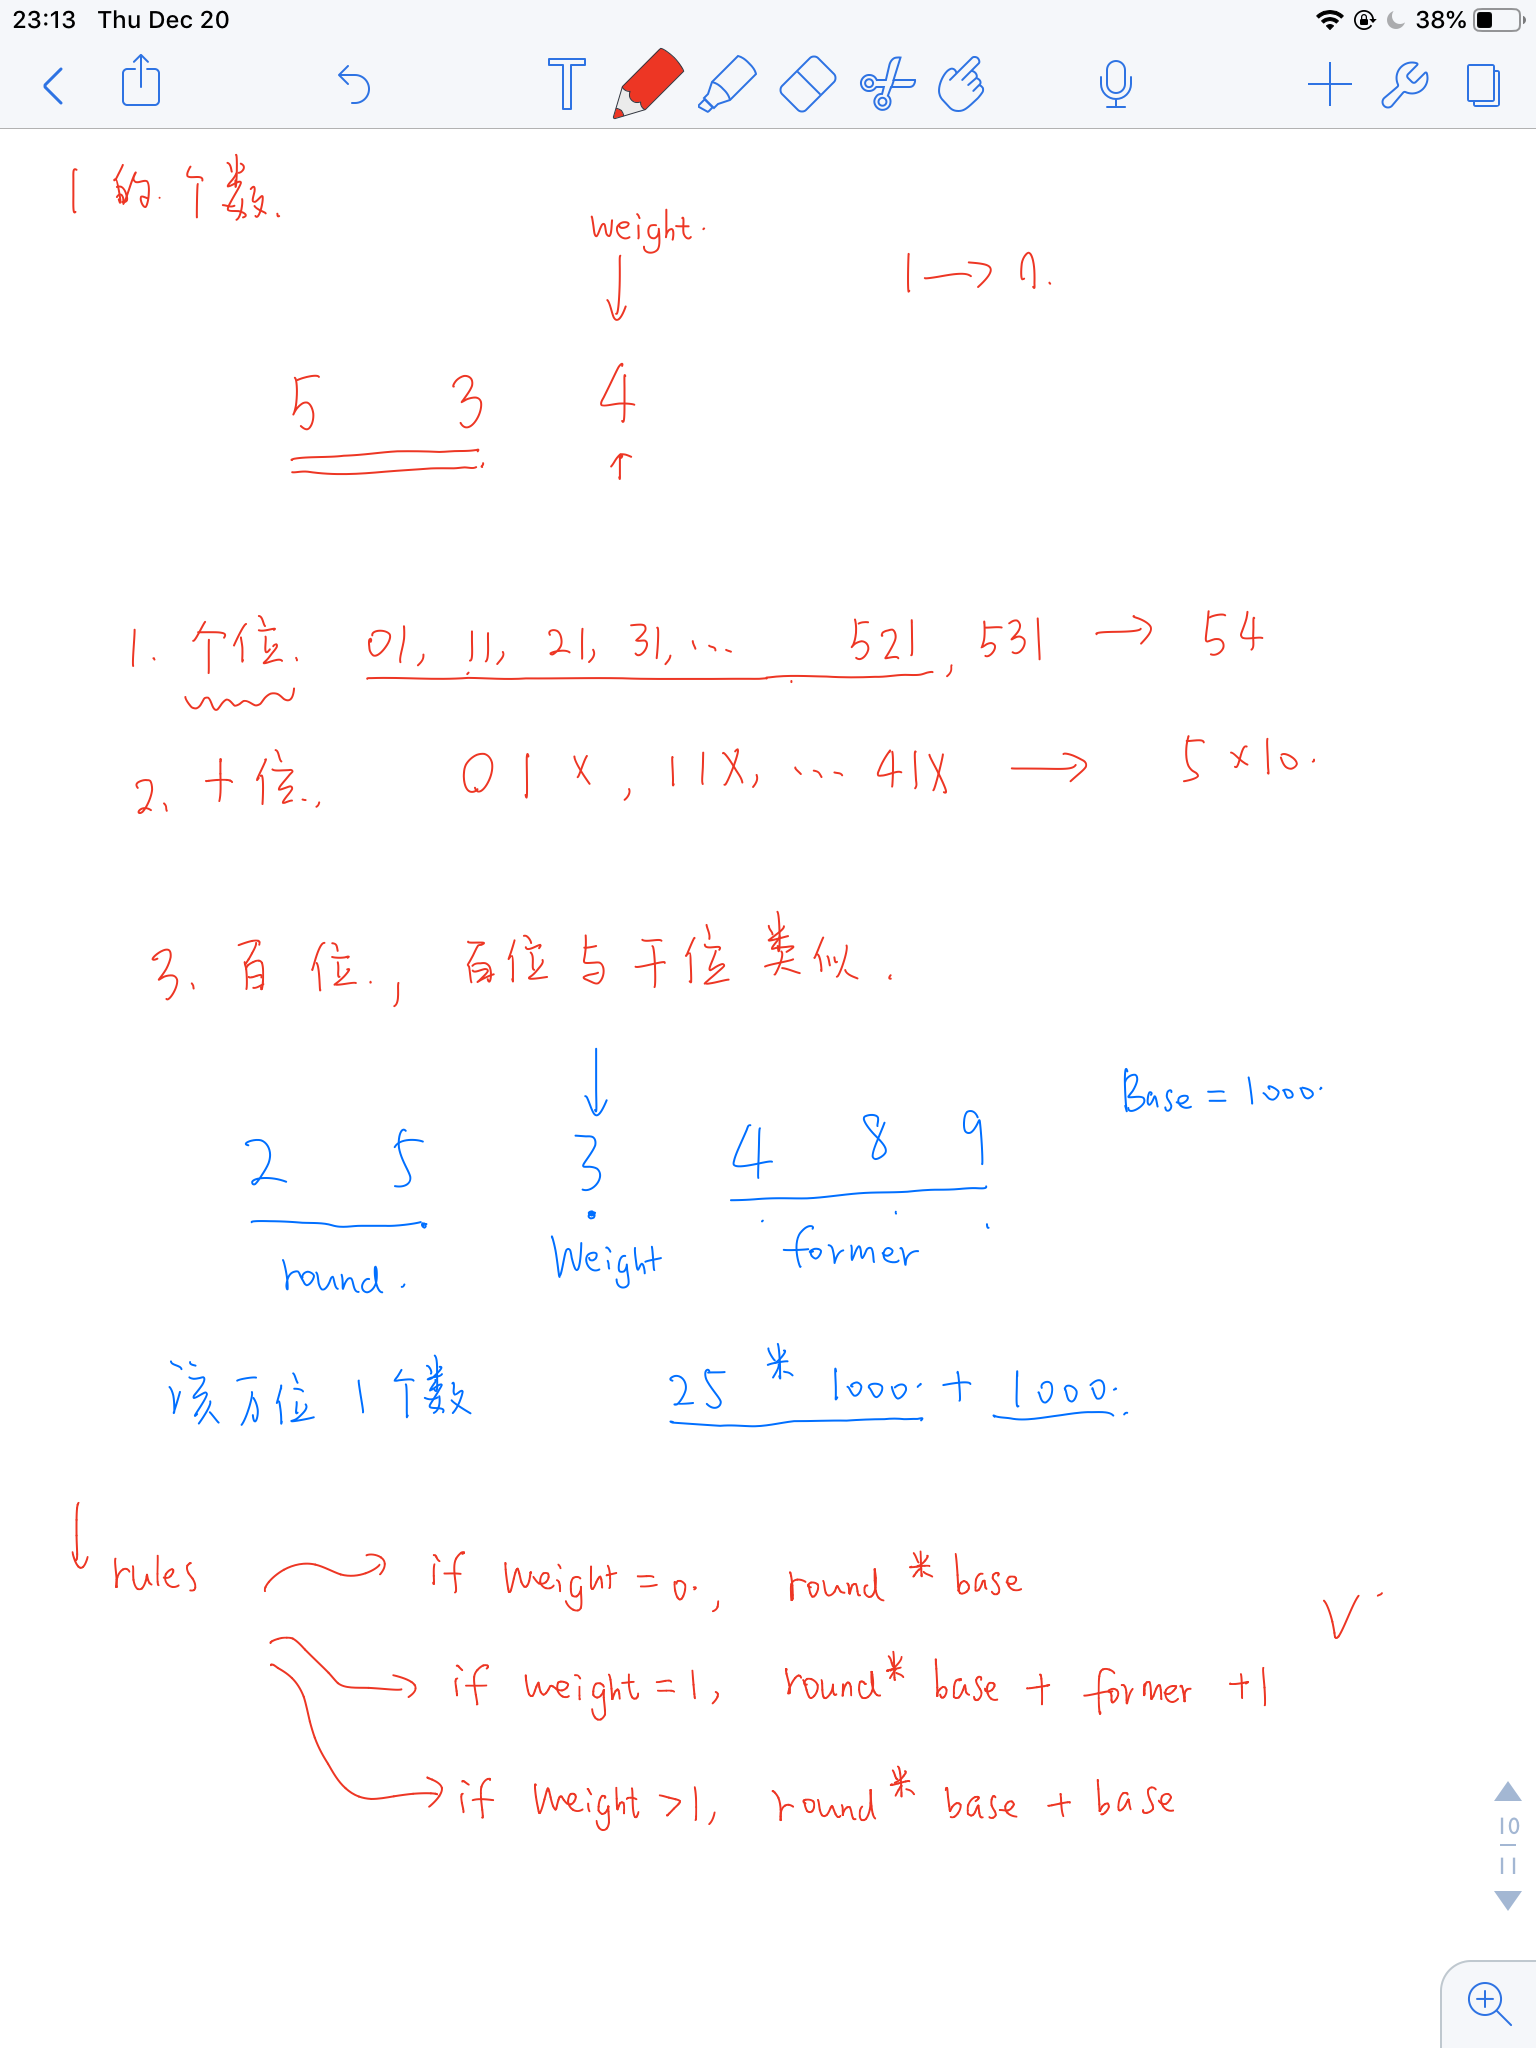 23:13 Thu Dec 20 38%
1 的.个数.
weight.
1 → n.
5 3 4
1. 个位. 01, 11, 21, 31, ... 521, 531 → 54
2. 十位., 01X, 11X, ... 41X → 5 × 10.
3. 百位., 百位与千位类似.
Base = 1000.
2 5 3 4 8 9
round. Weight former
该万位 1 个数 25 * 1000. + 1000.
rules if weight = 0., round * base
if weight = 1, round * base + former + 1
if weight > 1, round * base + base
10
11